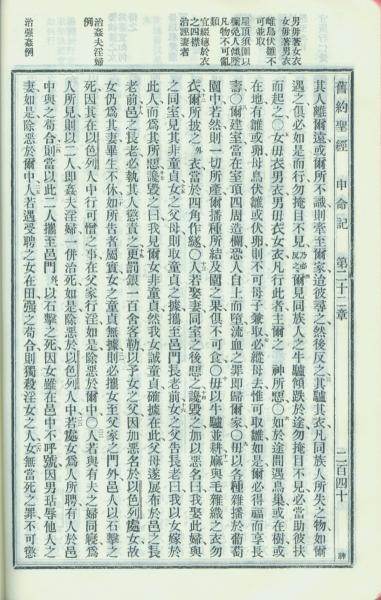 男毋著女衣
女毋著男衣
雌鳥伏雛不
可並取
屋頂須圍以
欄免人傾墜
凡物不可亂
類
宜綴繐於衣
之四隅
治誣妻者
治姦夫淫婦
例
治強姦例
舊約聖經 申命記 第二十二章 二百四十 神
其人離爾遠或爾所不識則牽至爾家迨彼尋之然後反之其驢其衣凡同族人所失之物如爾
遇之俱必如是而行勿掩目不見乃必反之爾見同族人之牛驢傾跌於途勿掩目不見必當助彼扶
而起之〇女毋衣男衣男毋衣女衣凡行此者主爾之 神所惡〇如於途間遇鳥巢或在樹或
在地有雛或卵母鳥伏雛或伏卵則不可母子兼取必縱母去惟可取雛如是爾必得福而享長
壽〇爾建室當在室頂四周造欄恐人自上而墮流血之罪即歸爾家〇毋以二種雜播於葡萄
園中若然則一切所產爾播種所結及園之果俱不可食〇毋以牛驢並耕麻與毛雜織之衣勿
衣爾所披之衣當於四角作繸〇人若娶妻同室之後惡之譭毀之加以惡名曰我娶此婦與
之同室見其非童貞女之父母則取童貞之據攜至邑門長老前女之父告長老曰我以女嫁於
此人而為其所惡譭毀之曰我見爾女非童貞然我女誠童貞確據在此父母遂展布於邑之長
老前邑之長老必執其人懲責之更罰銀一百舍客勒以予女之父因加惡名於以色列處女故
女仍為其妻畢生不休如所告者屬實女之童貞無據則必攜女至父家之門外邑人以石擊之
死因其在以色列人中行可憎之事在父家行淫如是除惡於爾中〇人若與有夫之婦同寢為
人所見則以二人即姦夫淫婦一併治死如是除惡於以色列人中若處女為人所聘有人於邑
中與之苟合則當以此二人攜至邑門以石擊之死因女雖在邑中不呼號因男玷辱他人之
妻如是除惡於爾中人若遇受聘之女在田強之苟合則獨殺淫女之人女無當死之罪不可懲